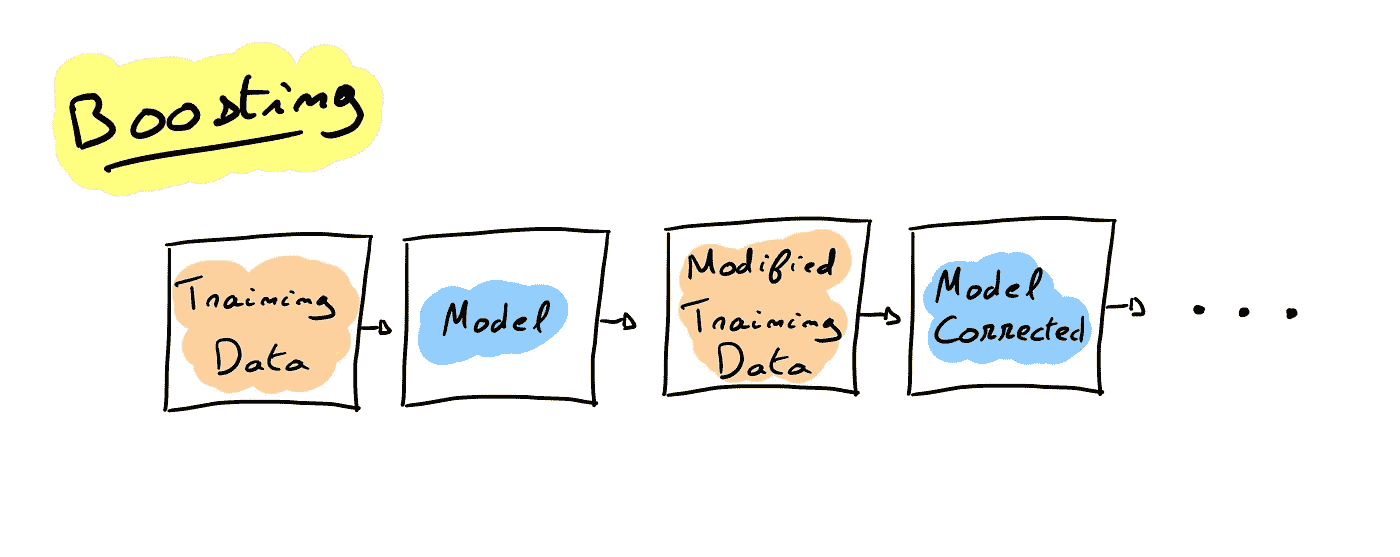 Boosting
Training
Data
Model
Modified
Training
Data
Model
Corrected
. . .